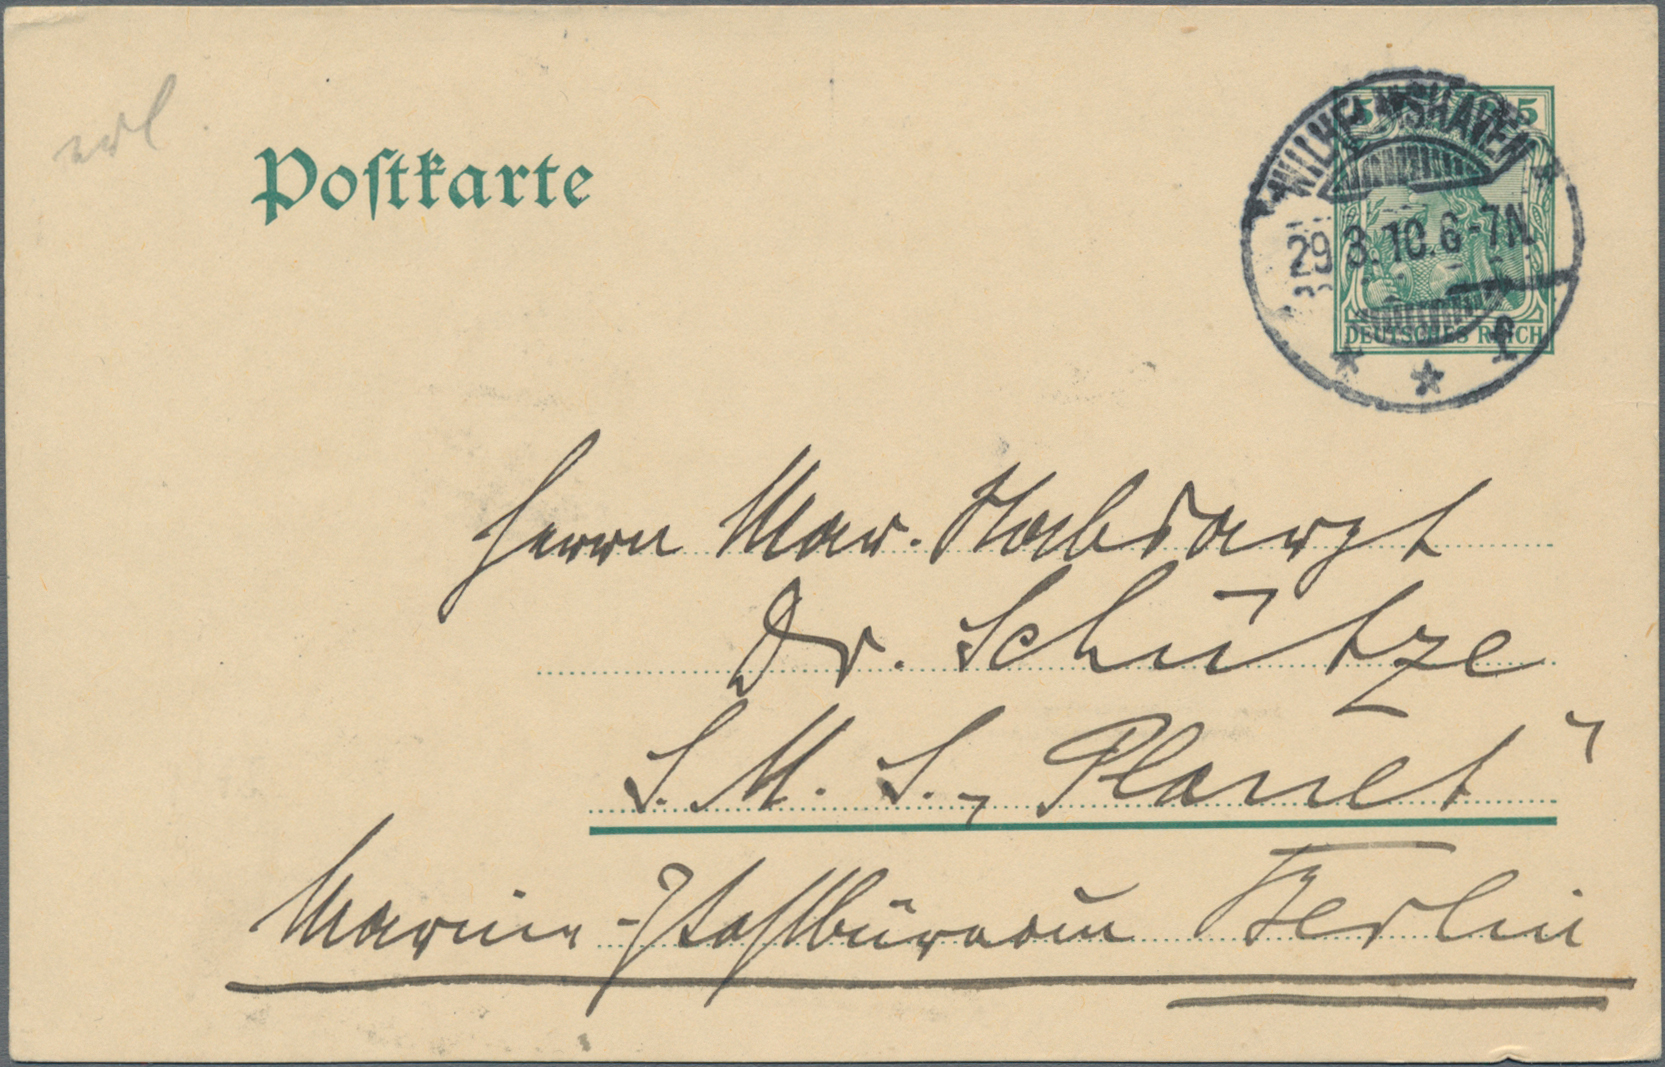 erl
Postkarte
5 5
WILHELMSHAVEN
29.3.10.6-7N.
* * f
DEUTSCHES REICH
Herrn Mar. Stabsarzt
Dr. Schütze
S. M. S. „Planet“
Marine-Postbüreau Berlin